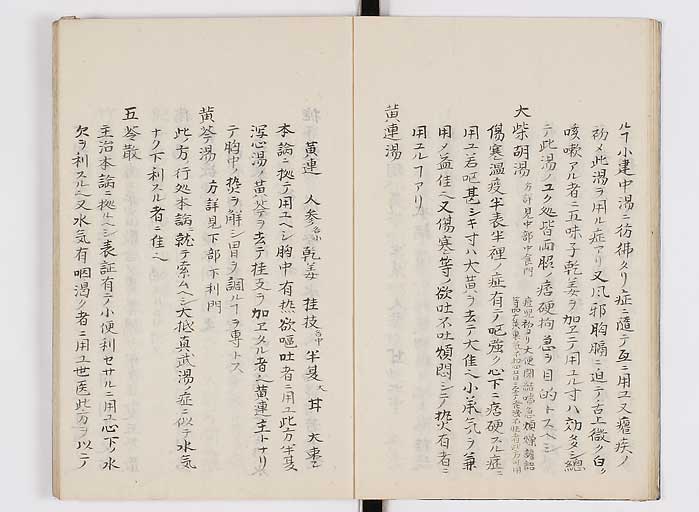 ルヿ小建中湯ニ彷彿タリ症ニ隨テ互ニ用ユ又瘧疾ノ
初メ此湯ヲ用ル症アリ又風邪胸膈ニ迫テ舌上微ク白ク
咳嗽アル者ニ五味子乾姜ヲ加ヱテ用ユル寸ハ効タシ總
テ此湯ノユク処皆両脇ノ痞硬拘急ヲ目的トスヘシ
大柴胡湯 方詳見中部中食門
傷寒温疫半表半裡ノ症有テ呕強ク心下ニ痞硬スル症ニ
用ユ若呕甚シキ寸ハ大黄ヲ去テ大佳之小承气ヲ兼
用メ益佳之又傷寒等ノ欲吐不吐煩悶シテ熱火有者ニ
用ユルヿアリ
黄連湯
黄連 人参 乾姜 桂枝 半夏 甘 大棗
本論ニ拠テ用ユヘシ胸中有热欲嘔吐者ニ用ユ此方半夏
瀉心湯ノ黄芩ヲ去テ桂支ヲ加ヱタル者之黄連主トナリ
テ胸中ノ熱ヲ解シ胃ヲ調ルヿヲ專トス
黄芩湯 方詳見下部下利門
此方ノ行処本論ニ就テ索ムヘシ大抵真武湯ノ症ニ似テ水気
ナク下利スル者ニ佳之
五苓散
主治本論ニ拠ルヘシ表証有テ小便利セサルニ用ユ心下ノ水
欠ヲ利スル之又水気有咽渇ク者ニ用ユ世医此方ヲ以テ